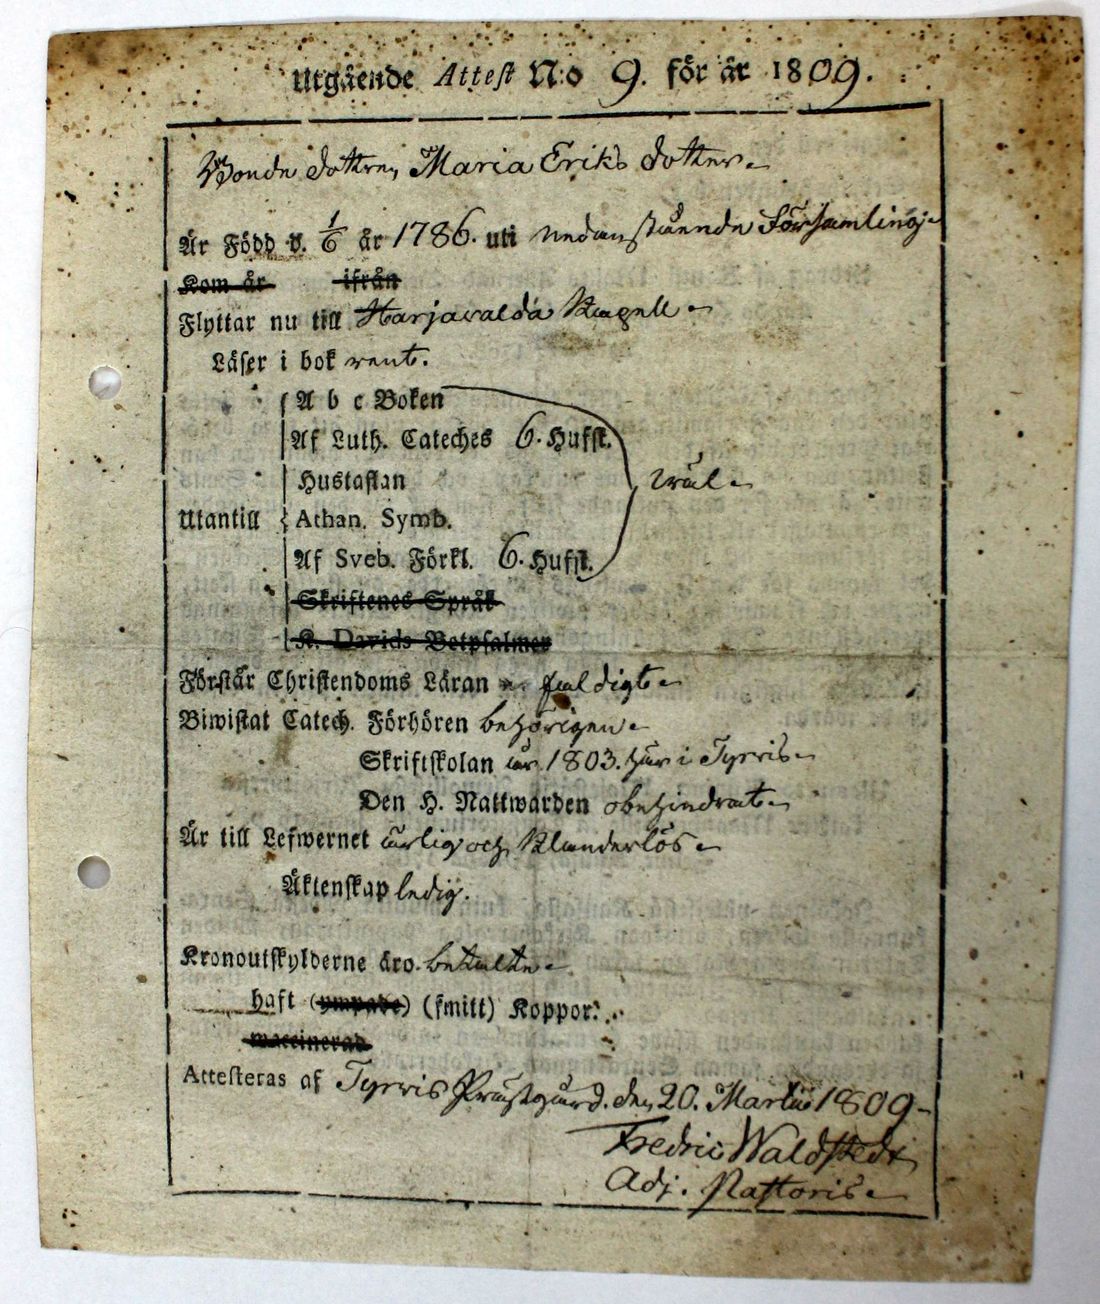 Utgående Attest N:o 9. för år 1809.
Bonde dottren Maria Eriks dotter
Är Född d. 1/6 år 1786. uti nedanstående Församling
Kom år ifrån
Flyttar nu till Harjavalda Kapell
Läser i bok rent.
A b c Boken
Af Luth. Cateches 6. Hufst.
Hustaflan wäl
Utantill Athan. Symb.
Af Sveb. Förkl. 6. Hufst.
Skriftenes Språk
K. Davids Botpsalmer
Förstår Christendoms Läran nödigt
Biwistat Catech. Förhören behörigen
Skriftskolan år 1803. här i Tyrvis
Den H. Nattwarden obehindrat
Är till Lefwernet ärlig och klanderlös
Äktenskap ledig.
Kronoutskylderne äro betalte
haft (ympade) (smitt) Koppor.
waccinerad
Attesteras af Tyrvis Prästgård. den 20. Martii 1809
Fredric Waldstedt
Adj. Pastoris